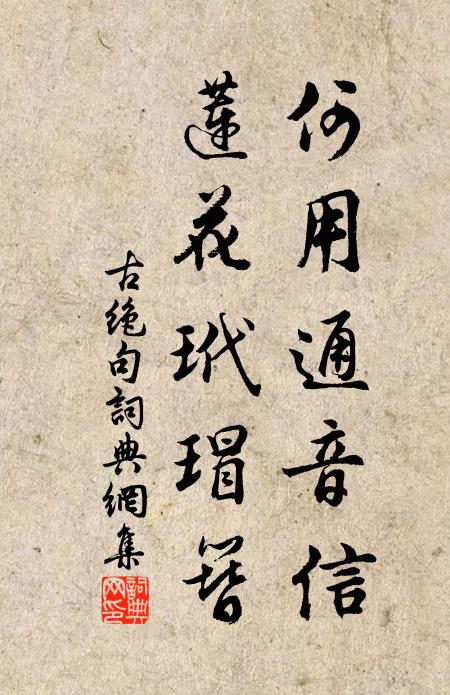 何用通音信
蓮花玳瑁簪
古絶句詞典網集
詞典
网印